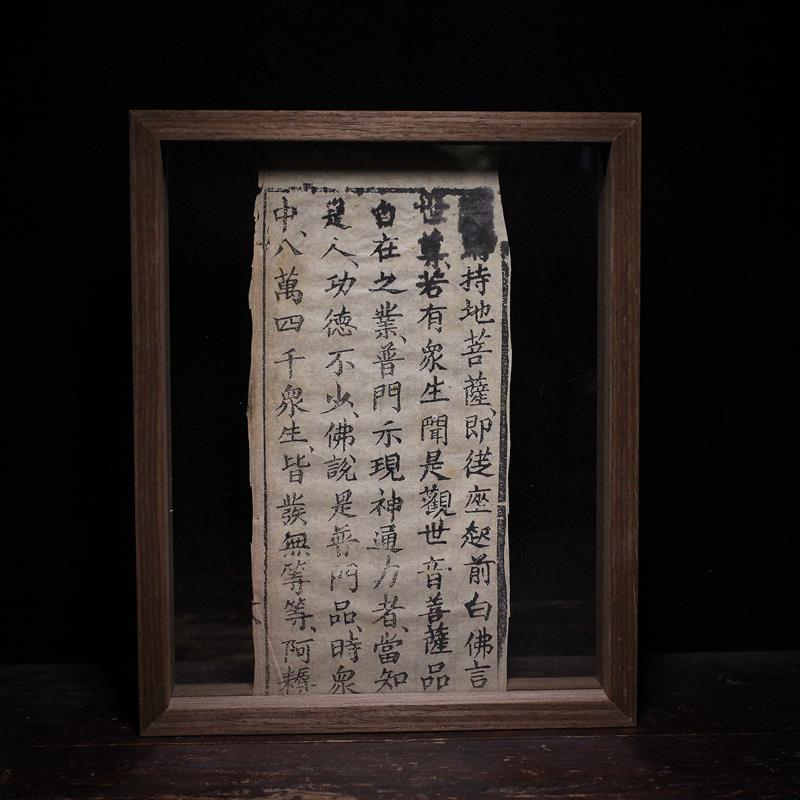 持地菩薩、即從座起前白佛言
世尊、若有衆生聞是觀世音菩薩品
自在之業、普門示現神通力者、當知
是人、功德不少、佛說是普門品、時衆
中、八萬四千衆生、皆發無等等、阿耨